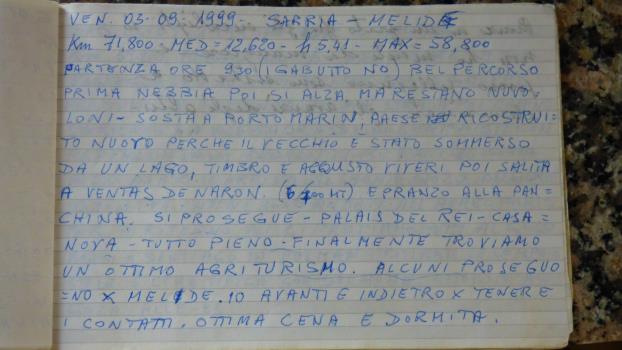 VEN. 03-09-1999 - SARRIA - MELIDE
Km 71,800 MED=12,620 - h 5,41 - MAX=58,800
PARTENZA ORE 930 (GABUTTO NO) BEL PERCORSO
PRIMA NEBBIA POI SI ALZA MA RESTANO NUVO-
LONI - SOSTA A PORTOMARIN, PAESE RICOSTRUI=
TO NUOVO PERCHE IL VECCHIO E STATO SOMMERSO
DA UN LAGO, TIMBRO E ACQUSTO VIVERI POI SALITA
A VENTAS DE NARON. E PRANZO ALLA PAN=
CHINA. SI PROSEGUE - PALAIS DEL REI - CASA=
NOVA - TUTTO PIENO - FINALMENTE TROVIAMO
UN OTTIMO AGRITURISMO. ALCUNI PROSEGUO
=NO X MELIDE. IO AVANTI E INDIETRO X TENERE
I CONTATTI. OTTIMA CENA E DORMITA.